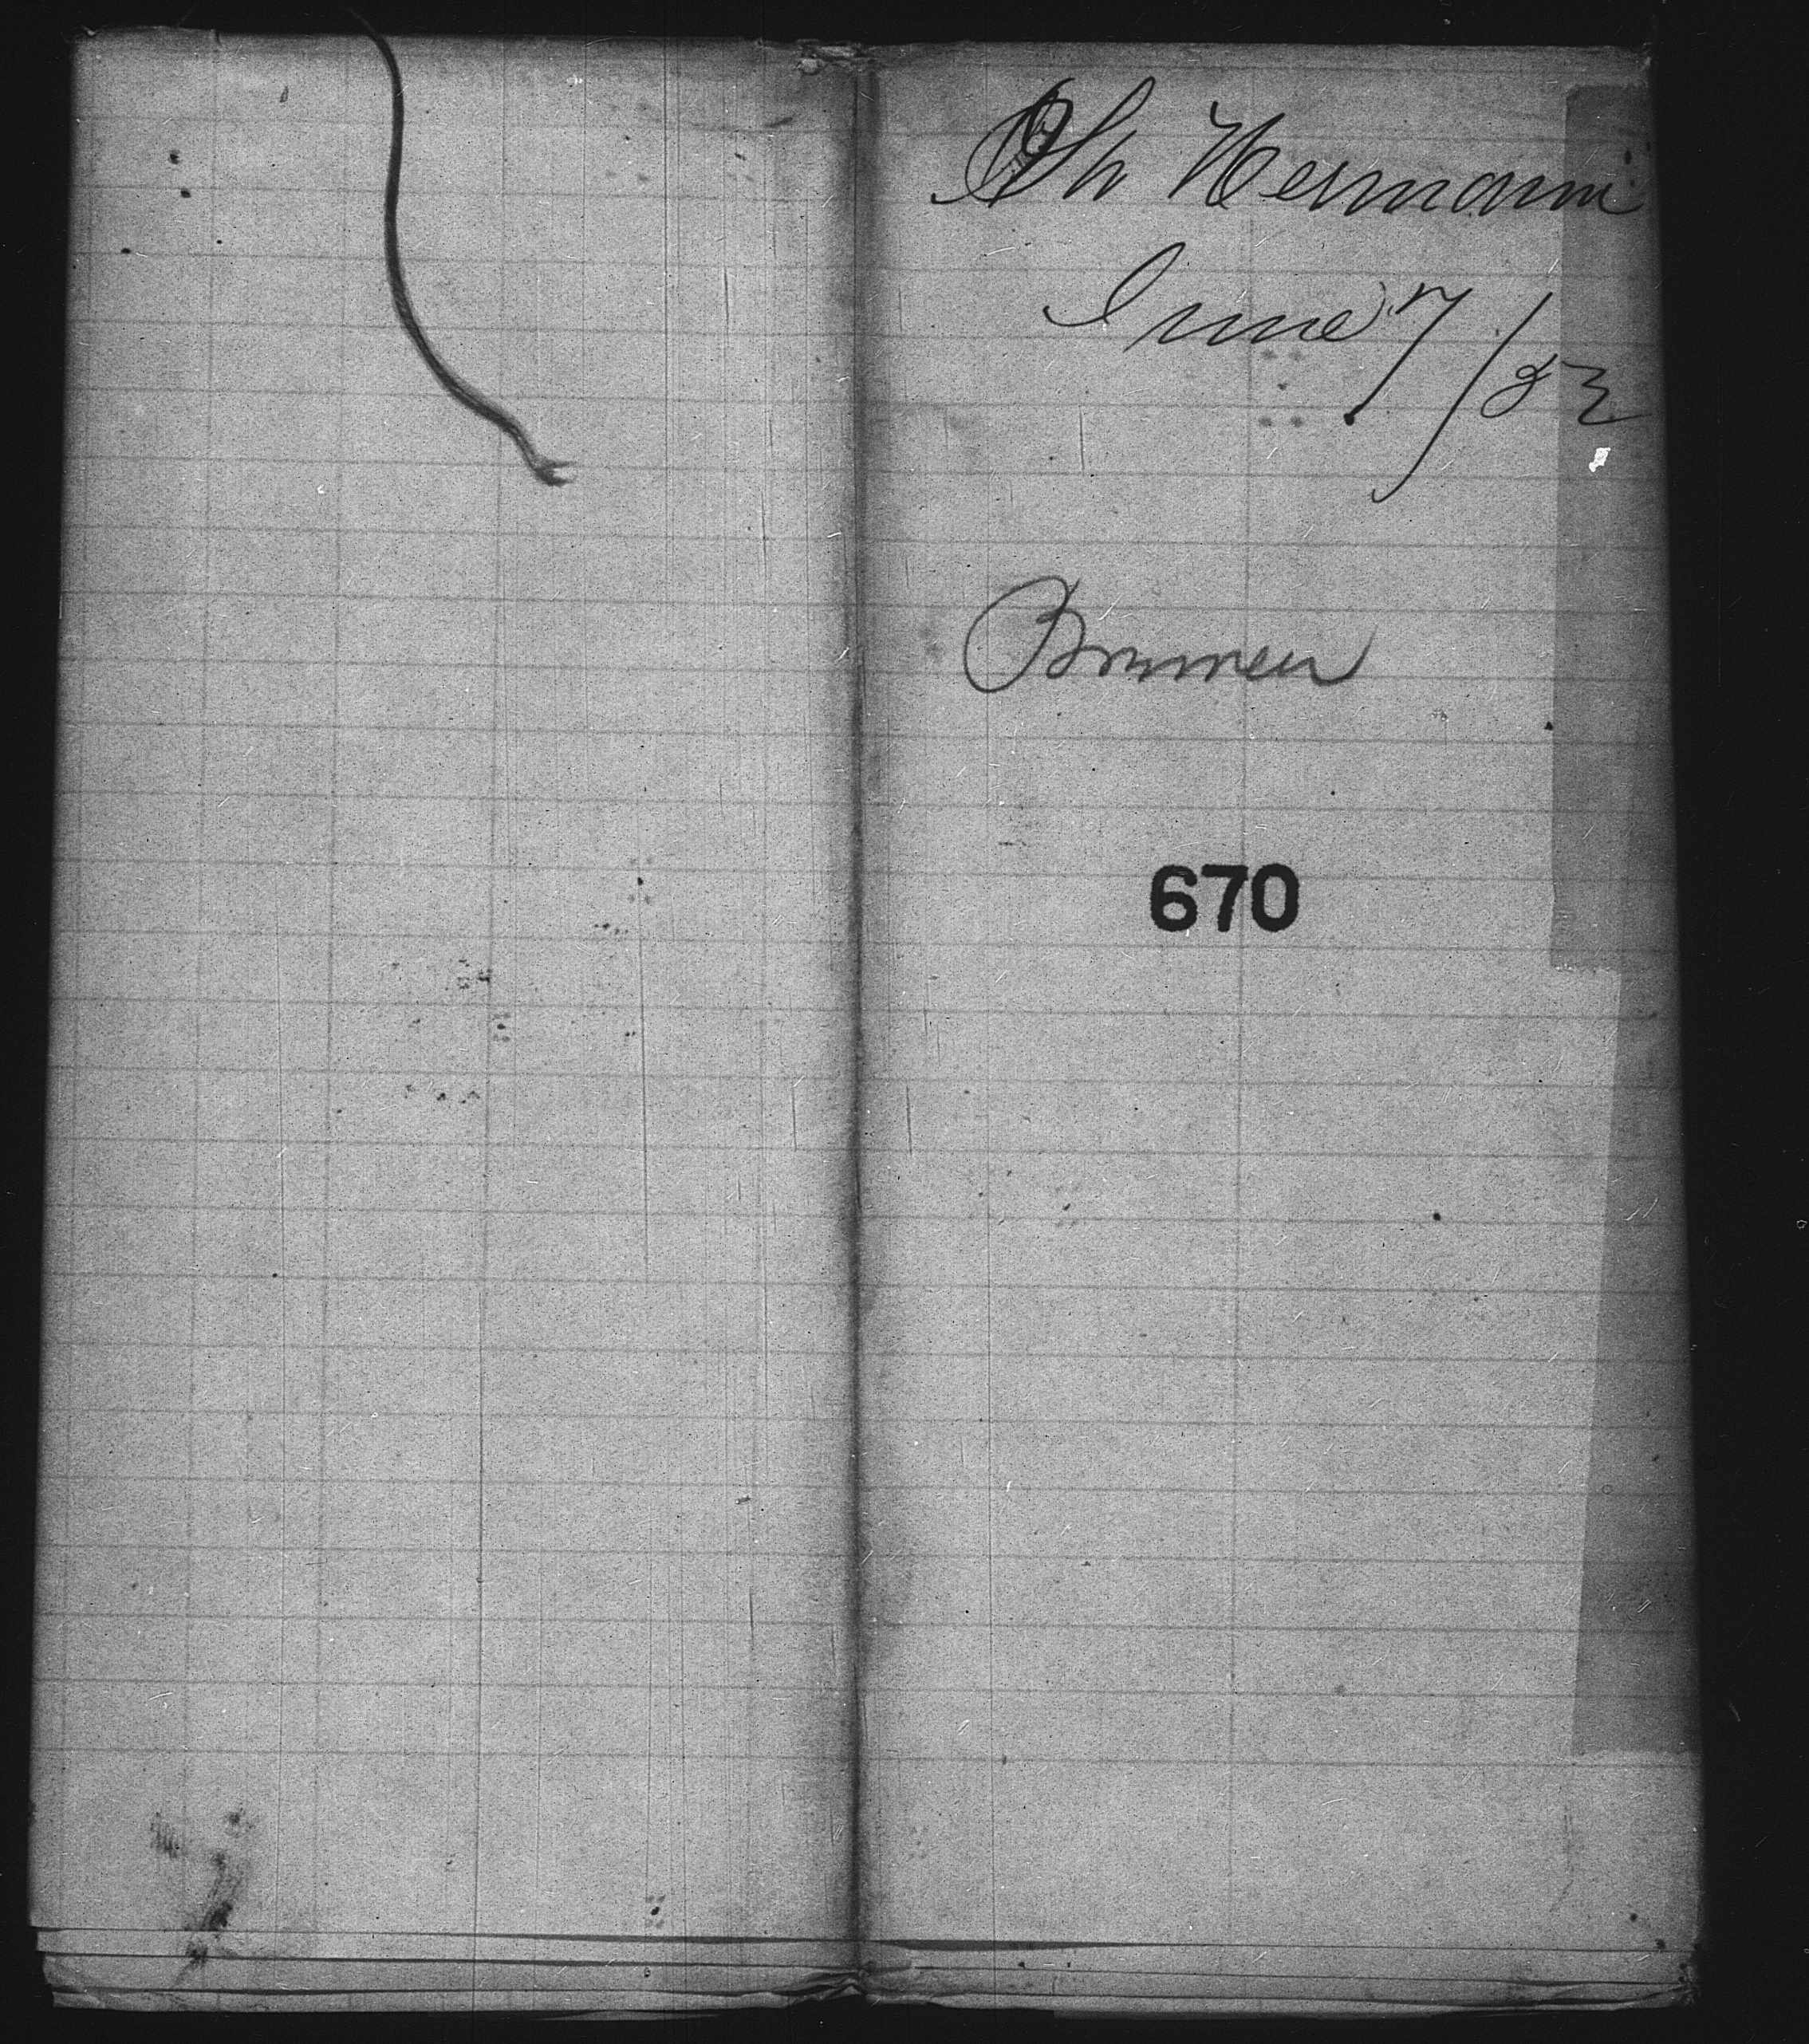 Sh Hermann
June 7/83
Bremen
670